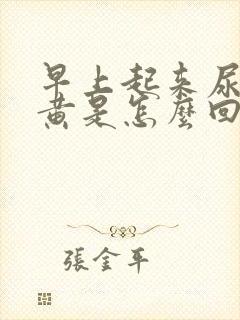 早上起来尿
黄是怎麼回
張金平